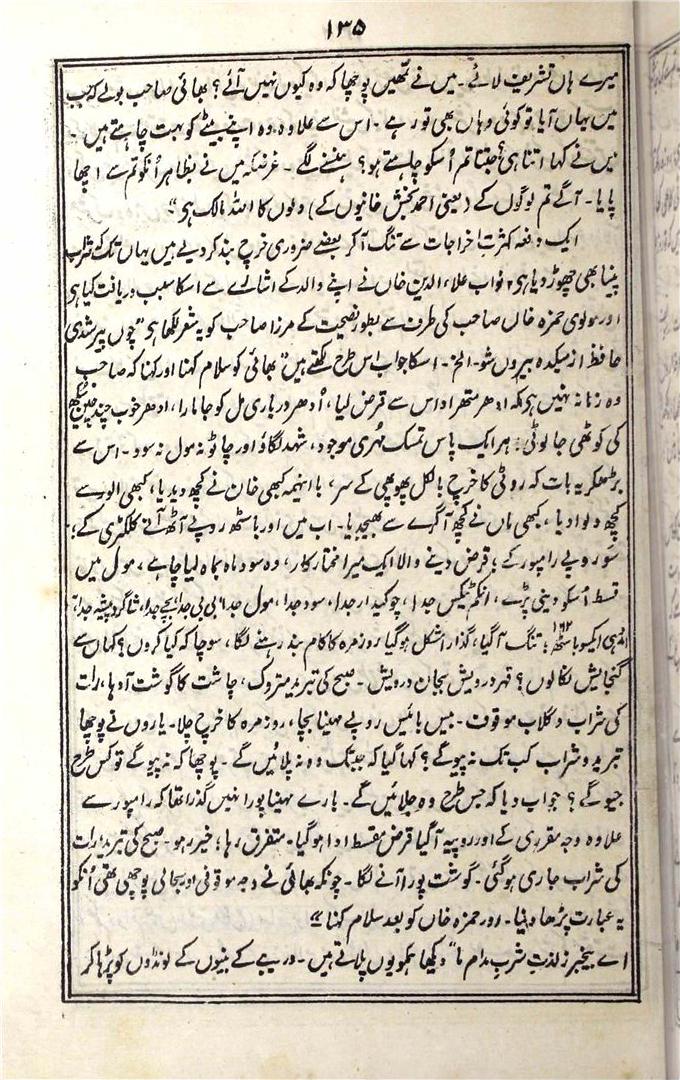 ۱۳۵
میرے ہاں تشریف لائے۔ میں نے نہیں پوچھا کہ وہ کیوں نہیں آئے؟ بھائی صاحب بولے کہ جب
میں یہاں آیا تو کوئی وہاں بھی تو رہے ۔ اس سے علاوہ وہ اپنے بیٹے کو بہت چاہتے ہیں ۔
میں نے کہا اتنا ہی جتنا تم اُسکو چاہتے ہو؟ ہنسنے لگے ۔ غرضکہ میں نے بظاہر اُنکو تم سے اچھا
پایا ۔ آگے تم لوگوں کے (یعنی احمد بخش خانیوں کے) دلوں کا اللہ مالک ہی "
ایک دفعہ کثرتِ اخراجات سے تنگ آکر بعضے ضروری خرچ بند کردیے ہیں یہاں تک کہ شراب
پینا بھی چھوڑ دیا ہی ؛ نواب علاء الدین خاں نے اپنے والد کے اشارے سے اسکا سبب دریافت کیا ہی
اور مولوی حمزہ خاں صاحب کی طرف سے بطور نصیحت کے مرزا صاحب کو یہ شعر لکھا ہی "چوں پیر شدی
حافظ از میکدہ بیروں شو ۔ الخ ۔ اسکا جواب اس طرح لکھتے ہیں" بھائی کو سلام کہنا اور کہنا کہ صاحب
وہ زمانہ نہیں ہی کہ ادھر متھرا داس سے قرض لیا، اُدھر درباری مل کو جا مارا، ادھر خوب چند چین سکھ
کی کوٹھی جا لوٹی؛ ہر ایک پاس تمسک مہری موجود، شہد لگاؤ اور چاٹو نہ مول نہ سود ۔ اس سے
بڑھکر یہ بات کہ روٹی کا خرچ بالکل پھوپھی کے سر، بااینہمہ کبھی خان نے کچھ دیدیا، کبھی الور سے
کچھ دلوادیا، کبھی ماں نے کچھ آگرے سے بھیجدیا ۔ اب میں اور باسٹھ روپے آٹھ آنے کلکٹری کے؛
سَو روپے رامپور کے؛ قرض دینے والا ایک میرا مختار کار، وہ سود ماہ بماہ لیا چاہے، مول میں
قسط اُسکو دینی پڑے، انکم ٹیکس جدا، چوکیدار جدا، سود جدا، مول جدا، بی بی جدا، بچے جدا، شاگرد پیشہ جدا،
آمدنی ایکسو باسٹھ ۱۶۲؛ تنگ آگیا، گذارا مشکل ہوگیا روزمرہ کا کام بند رہنے لگا، سوچا کہ کیا کروں؟ کہاں سے
گنجایش نکالوں؟ قہر درویش بجان درویش ۔ صبح کی تبرید متروک، چاشت کا گوشت آدھا، رات
کی شراب و گلاب موقوف ۔ بیس بائیس روپے مہینا بچا، روزمرہ کا خرچ چلا ۔ یاروں نے پوچھا
تبرید و شراب کب تک نہ پیوگے؟ کہا گیا کہ جبتک وہ نہ پلائیں گے ۔ پوچھا کہ نہ پیوگے تو کس طرح
جیوگے؟ جواب دیا کہ جس طرح وہ جِلائیں گے ۔ بارے مہینا پورا نہیں گذرا تھا کہ رامپور سے
علاوہ وجہ مقرری کے اور روپیہ آگیا قرض مقسط ادا ہوگیا ۔ متفرق رہا؛ خیر رہو ۔ صبح کی تبرید رات
کی شراب جاری ہوگئی ۔ گوشت پورا آنے لگا ۔ چونکہ بھائی نے وجہ موقوفی اور بحالی پوچھی تھی اُنکو
یہ عبارت پڑھا دینا ۔ اور حمزہ خاں کو بعد سلام کہنا "
اے بیخبر ز لذتِ شربِ مدام ما " دیکھا ہمکو یوں پلاتے ہیں ۔ دریبے کے بنیوں کے لونڈوں کو پڑھا کر